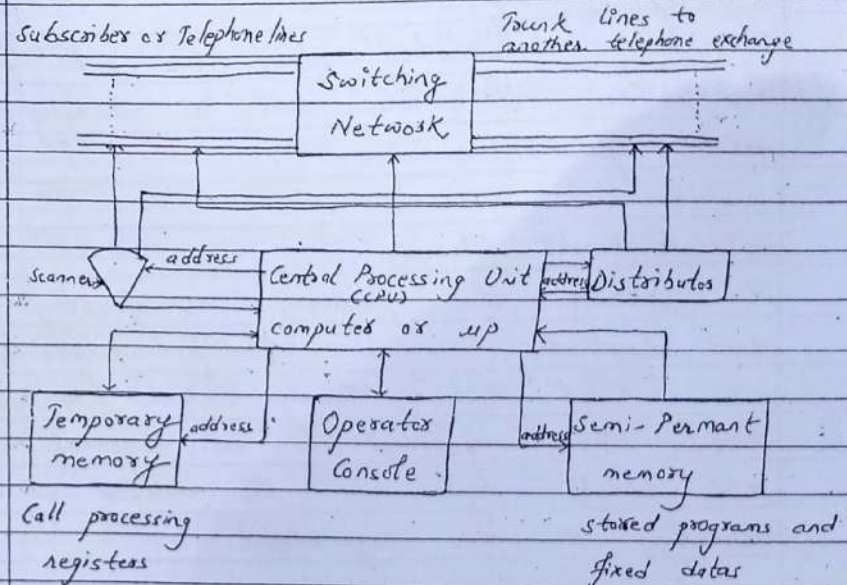 Subscriber or Telephone lines
Trunk lines to
another telephone exchange
Switching
Network
Scanner
address
Central Processing Unit
(CPU)
computer or μp
address
Distributor
Temporary
memory
address
Operator
Console
address
Semi-Permant
memory
Call processing
registers
stored programs and
fixed datas